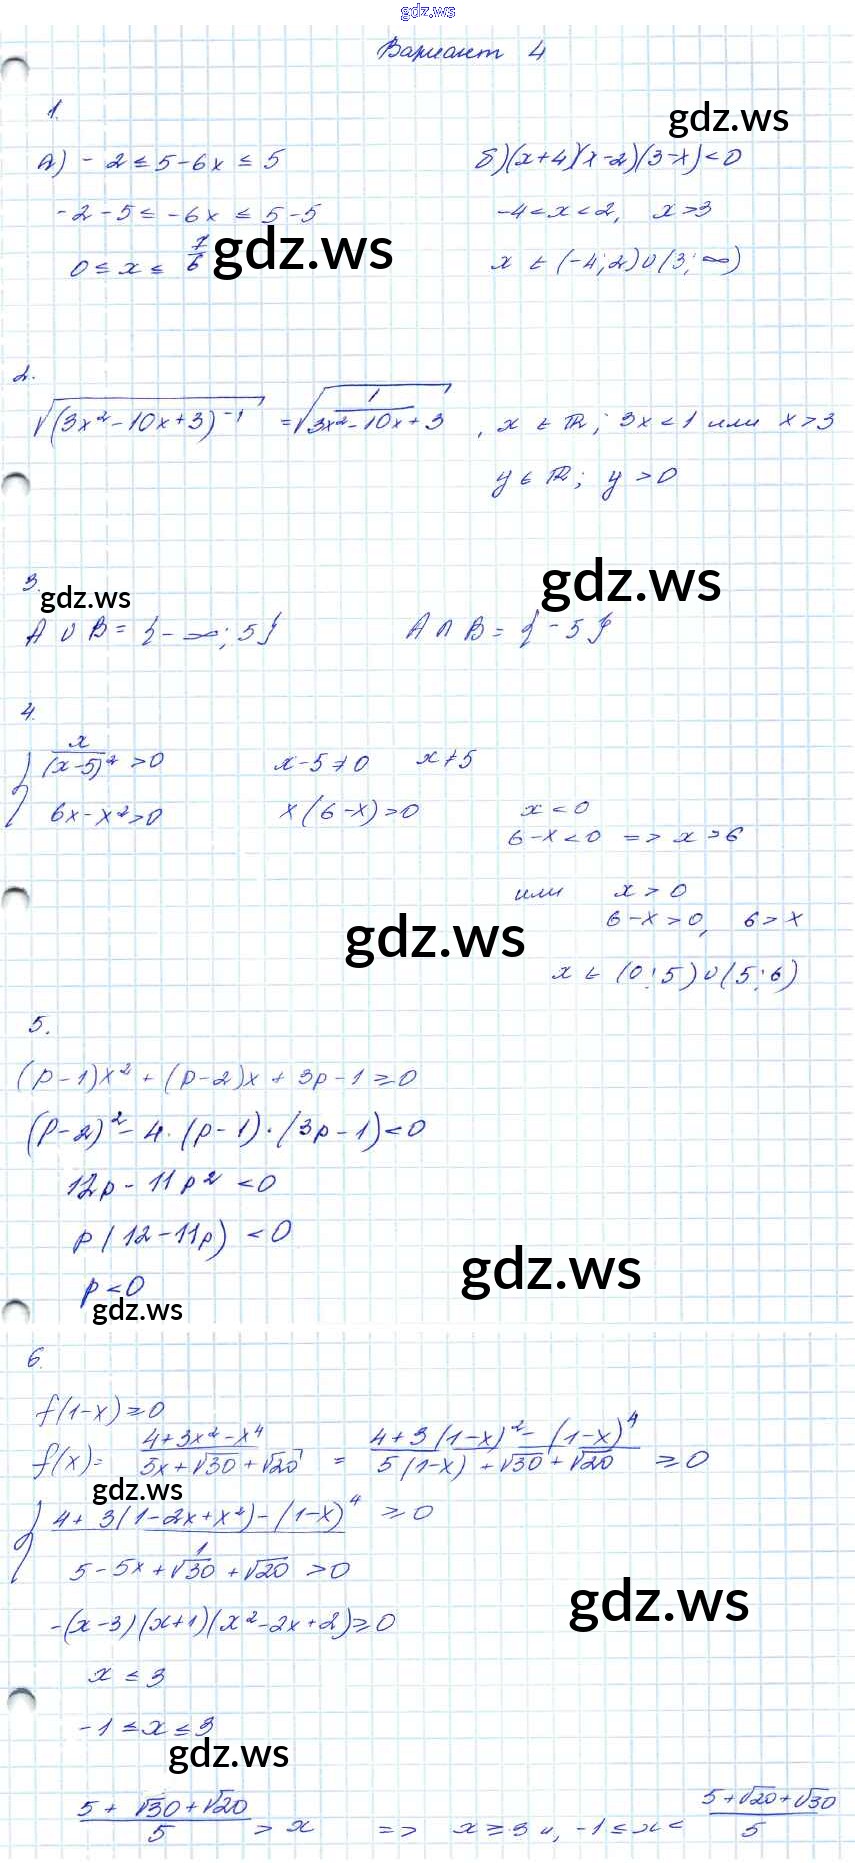 gdz.ws
Вариант 4
1.
gdz.ws
а) -2 ≤ 5-6x ≤ 5
-2-5 ≤ -6x ≤ 5-5
0 ≤ x ≤ 7/6
gdz.ws
б) (x+4)(x-2)(3-x)<0
-4<x<2, x>3
x ∈ (-4; 2)∪(3; ∞)
2.
√(3x²-10x+3)⁻¹ = √1/(3x²-10x+3) , x ∈ ℝ; 3x<1 или x>3
y ∈ ℝ; y>0
3.
gdz.ws
gdz.ws
A ∪ B = {-∞; 5} A ∩ B = {-5}
4.
{ x/(x-5)² >0 x-5≠0 x≠5
6x-x²>0 x(6-x)>0 x<0
6-x<0 => x>6
или x>0
6-x>0, 6>x
gdz.ws
x ∈ (0;5)∪(5;6)
5.
(p-1)x² + (p-2)x + 3p-1 ≥ 0
(p-2)² - 4·(p-1)·(3p-1)<0
12p - 11p² <0
p(12-11p) <0
gdz.ws
p<0
gdz.ws
6.
f(1-x) ≥ 0
f(x) = (4+3x²-x⁴)/(5x+√30+√20) = (4+3(1-x)²-(1-x)⁴)/(5(1-x)+√30+√20) ≥ 0
gdz.ws
{ (4+3(1-2x+x²)-(1-x)⁴)/1 ≥ 0
5-5x+√30+√20 >0
gdz.ws
-(x-3)(x+1)(x²-2x+2) ≥ 0
x ≤ 3
-1 ≤ x ≤ 3
gdz.ws
(5+√30+√20)/5 > x => x ≥ 3 и, -1 ≤ x < (5+√20+√30)/5